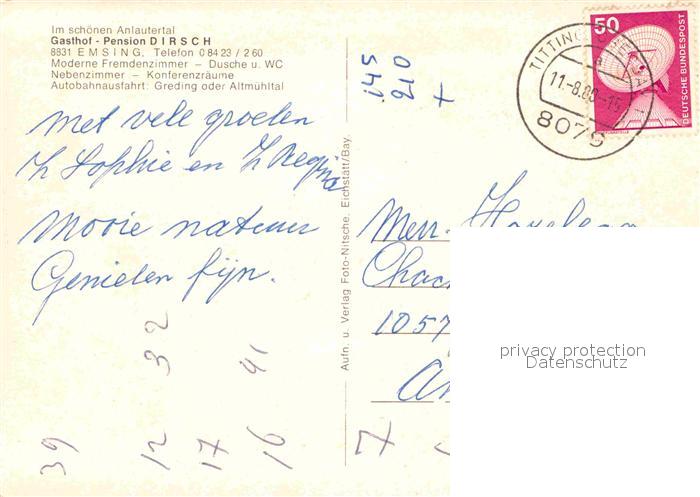 Im schönen Anlautertal
Gasthof - Pension DIRSCH
8831 EMSING, Telefon 0 84 23 / 2 60
Moderne Fremdenzimmer – Dusche u. WC
Nebenzimmer – Konferenzräume
Autobahnausfahrt: Greding oder Altmühltal
Met vele groeten
Zr Sophie en Zr Regina
Mooie natuur
Genieten fijn.
32
41
39
12
17
16
Aufn. u. Verlag Foto-Nitsche, Eichstätt/Bay.
50
DEUTSCHE BUNDESPOST
TITTING
11.-8.80-
8079
Mevr.
1057
7
privacy protection
Datenschutz